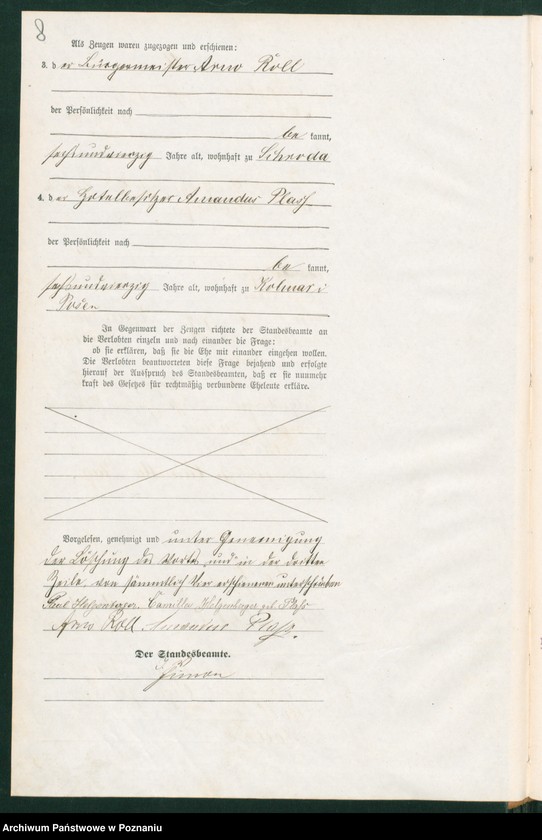 8
Als Zeugen waren zugezogen und erschienen:
3. der Bürgermeister Arno Roll
der Persönlichkeit nach
be kannt,
sechsundvierzig Jahre alt, wohnhaft zu Schroda
4. der Hotelbesitzer Amandus Plasz
der Persönlichkeit nach
be kannt,
sechsundvierzig Jahre alt, wohnhaft zu Kolmar i
Posen
In Gegenwart der Zeugen richtete der Standesbeamte an
die Verlobten einzeln und nach einander die Frage:
ob sie erklären, daß sie die Ehe mit einander eingehen wollen.
Die Verlobten beantworteten diese Frage bejahend und erfolgte
hierauf der Ausspruch des Standesbeamten, daß er sie nunmehr
kraft des Gesetzes für rechtmäßig verbundene Eheleute erkläre.
Vorgelesen, genehmigt und unter Genehmigung
der Löschung des Worts und in der dritten
Zeile, von sämmtlich hier erschienenen unterschrieben
Camilla geb. Plasz
Arno Roll. Amandus Plasz.
Der Standesbeamte.
Simon
Archiwum Państwowe w Poznaniu